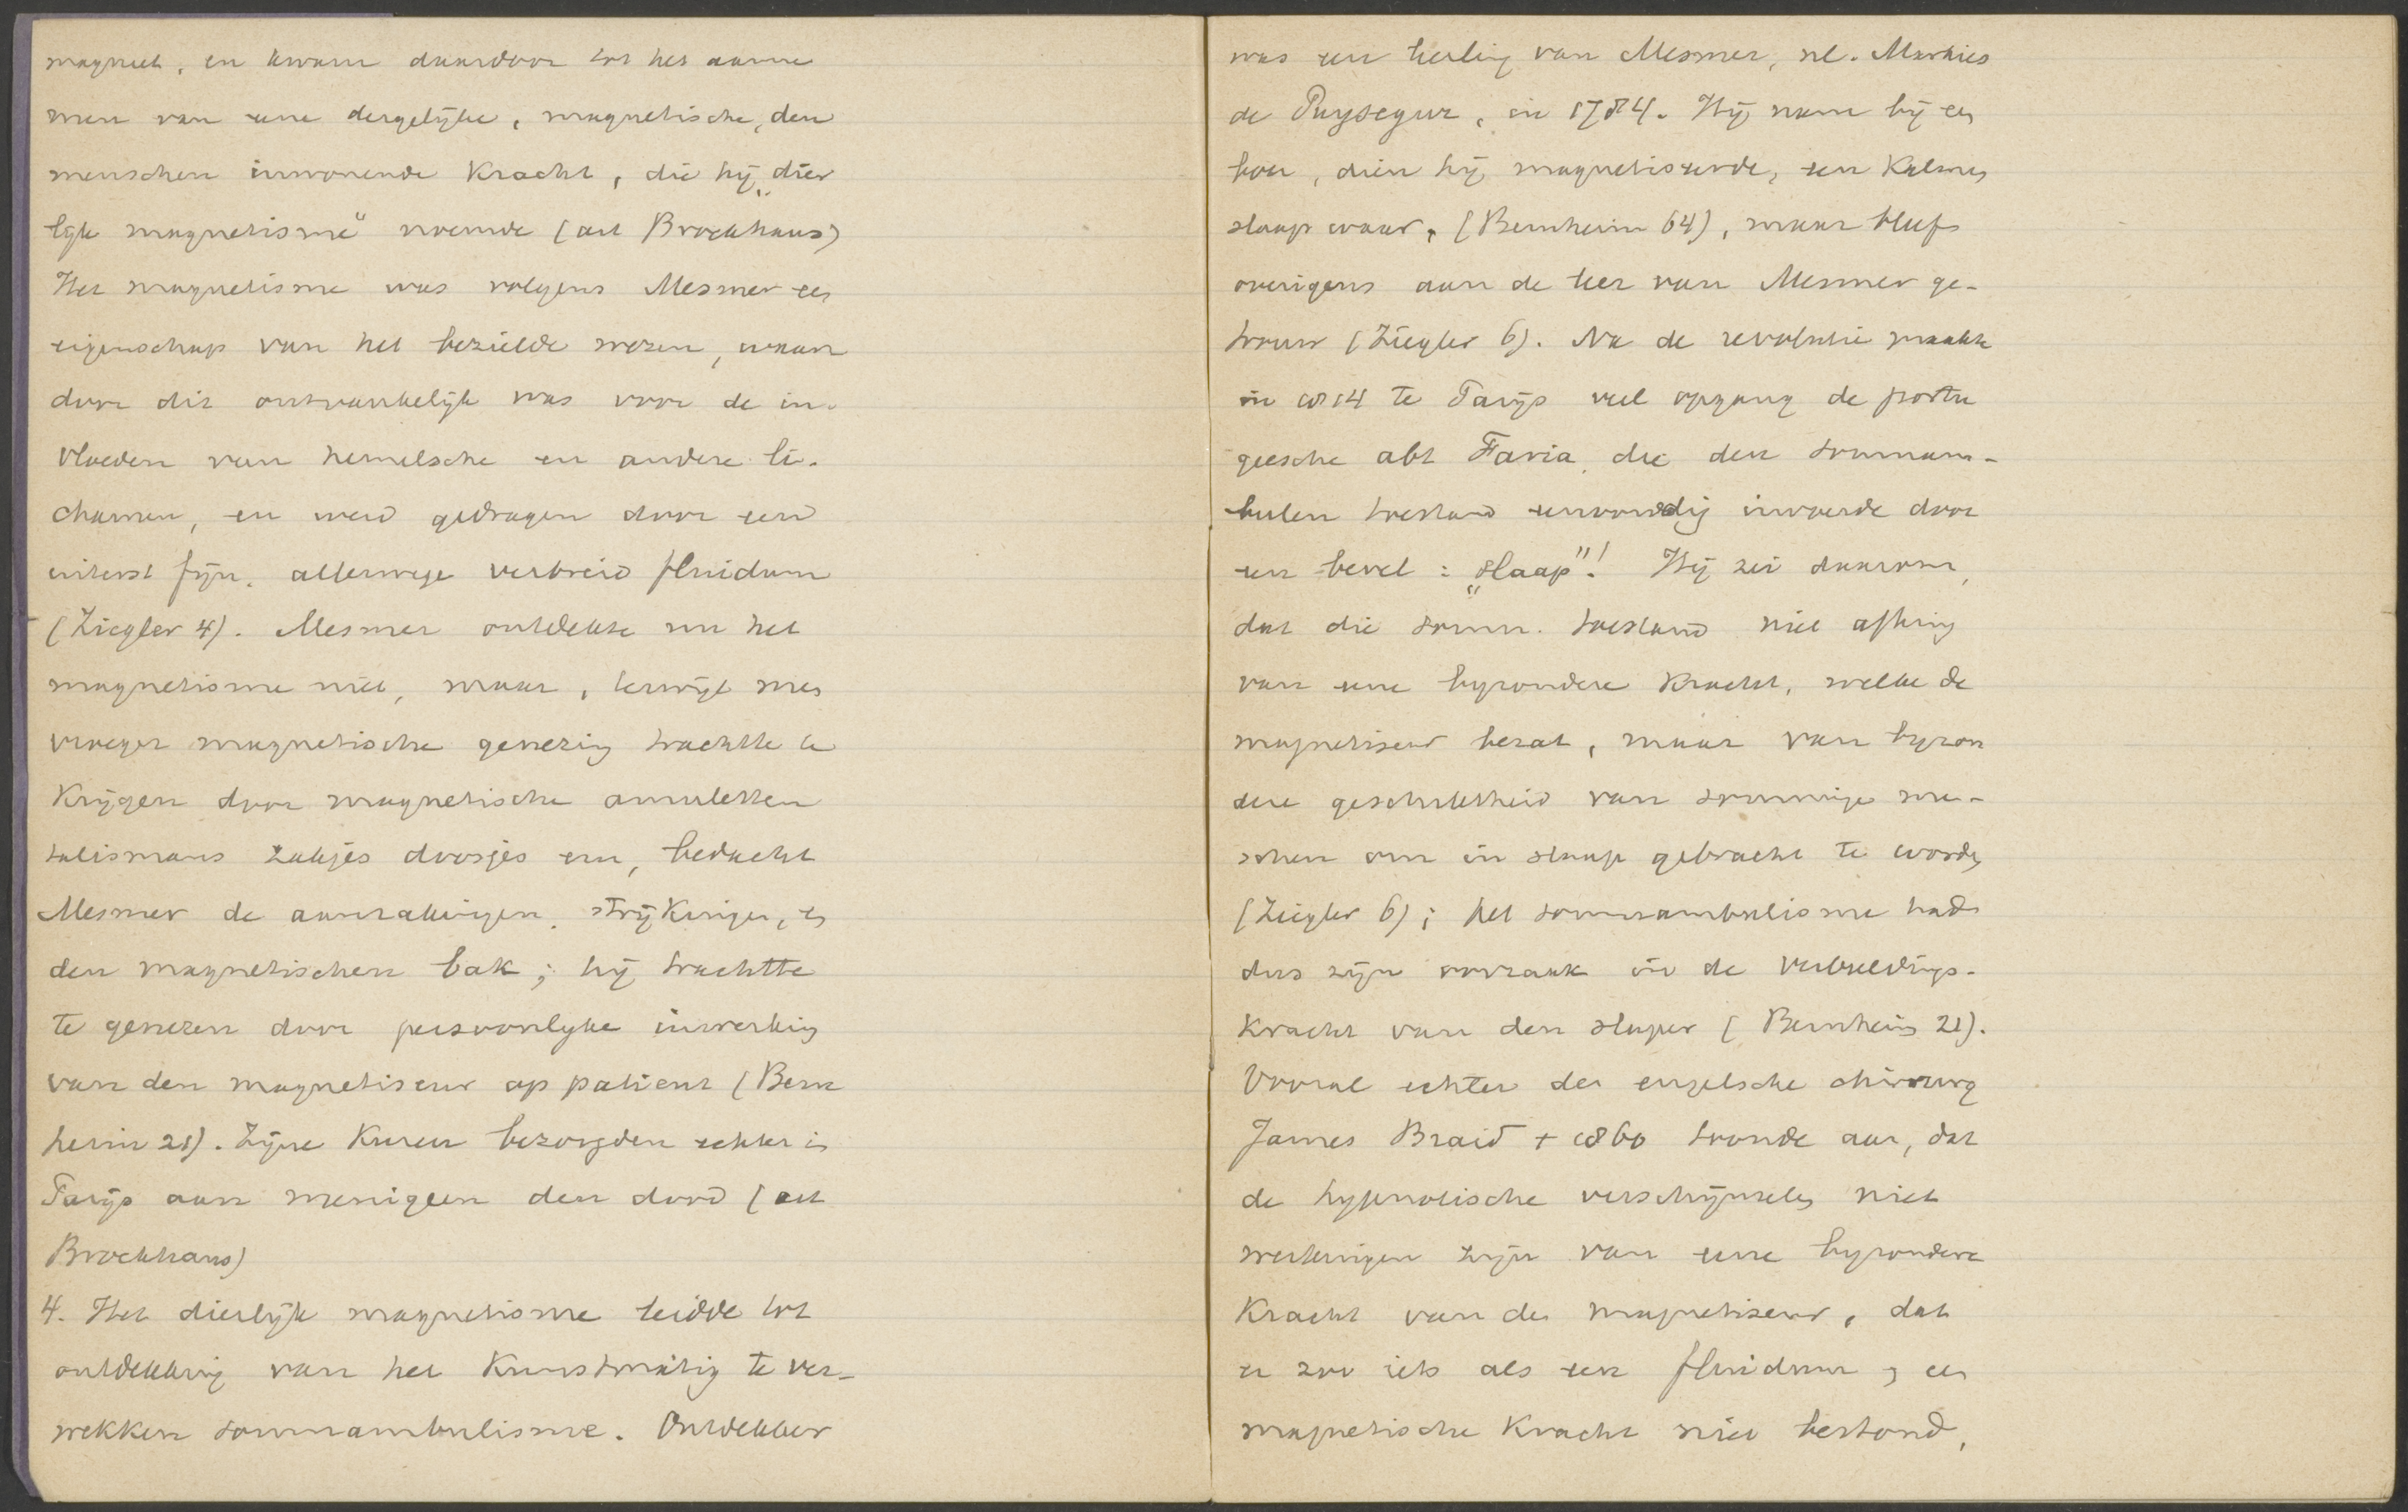 magneet, en kwam daardoor tot het aanne
men van eene dergelijke, magnetische, den
menschen inwonende kracht, die hij „dier
lijk magnetisme" noemde (art Brockhaus)
Het magnetisme was volgens Mesmer een
eigenschap van het bezielde wezen, waar
door dit ontvankelijk was voor de in-
vloeden van hemelsche en andere li-
chamen, en werd gedragen door een
uiterst fijn, allerwege verbreid fluidum
(Ziegler 4). Mesmer ontdekte nu het
magnetisme niet, maar, terwijl men
vroeger magnetische genezing trachtte te
krijgen door magnetische amuletten
talismans zakjes doosjes enz, bedacht
Mesmer de aanrakingen, strijkingen, en
den magnetischen bak; hij trachtte
te genezen door persoonlijke inwerking
van den magnetiseur op patient (Bern
heim 21). Zijne kuren bezorgden echter in
Parijs aan menigeen den dood (art
Brockhaus)
4. Het dierlijk magnetisme leidde tot
ontdekking van het kunstmatig te ver-
wekken somnambulisme. Ontdekker
was een leerling van Mesmer, nl. Markies
de Puysegur, in 1784. Hij nam bij een
boer, dien hij magnetiseerde, een kalmen
slaap waar, (Bernheim 64), maar bleef
overigens aan de leer van Mesmer ge-
trouw (Ziegler 6). Na de revolutie maakte
in 1814 te Parijs veel opgang de portu
geesche abt Faria, die den somnam-
bulen toestand eenvoudig invoerde door
een bevel: „slaap"! Hij zei daarom,
dat die somn. toestand niet afhing
van eene byzondere kracht, welke de
magnetiseur bezat, maar van byzon
dere geschiktheid van sommige men-
schen om in slaap gebracht te worden
(Ziegler 6); het somnambulisme had
dus zijn oorzaak in de verbeeldings-
kracht van den slaper (Bernheim 21).
Vooral echter de engelsche chirurg
James Braid + 1860 toonde aan, dat
de hypnotische verschijnselen niet
werkingen zijn van eene byzondere
kracht van den magnetiseur, dat
er zoo iets als een fluidum, een
magnetische kracht niet bestond,